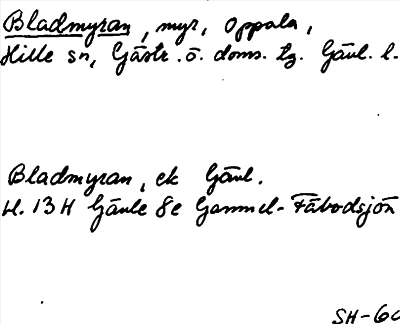 Bladmyran, myr, Oppala,
Hille sn, Gästr. ö. doms. tg. Gävl. l.
Bladmyran, ek Gävl.
bl. 13 H Gävle 8e Gammel-Fäbodsjön
SH-60